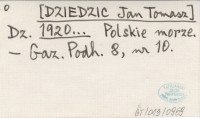 [DZIEDZIC Jan Tomasz]
Dz. 1920... Polskie morze.
— Gaz. Podh. 8, nr 10.